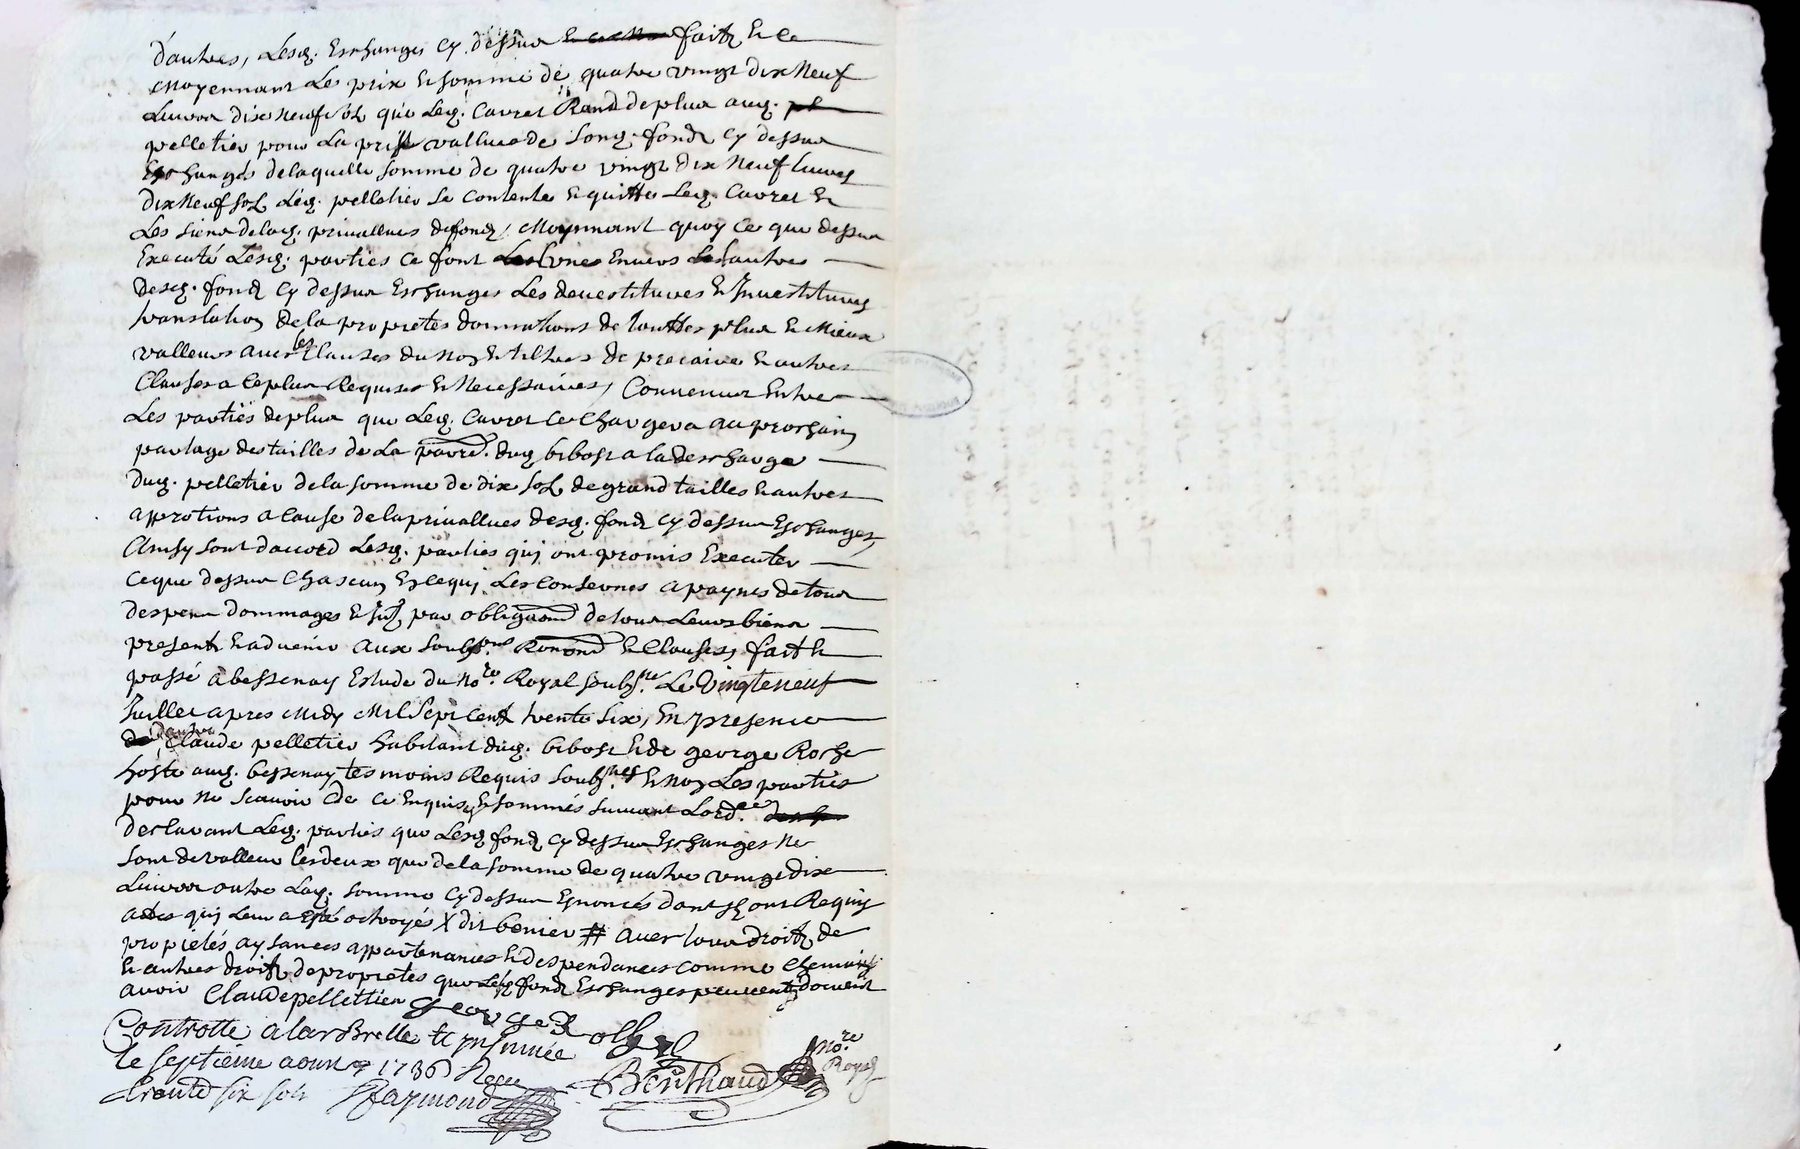 d'autres, Lesq. Eschanges cy dessus faitz Et ce
moyennant Le prix Et somme de quatre vingt dix Neuf
Livres dix neuf sols que Leq. Cavret Rend de plus auq.
pelletier pour La prise vallue de sonq. fondz cy dessus
Eschangé de laquelle somme de quatre vingt dix Neuf Livres
dix Neuf sols Leq. pelletier se contente Et quitte Leq. Cavret Et
Les siens de laq. privallues de fondz, Moyennant quoy ce que dessus
Executé Lesq. parties ce font Les Unes Envers Les autres
Desq. fondz cy dessus Eschanges Les devestitures Et Jnvestitures
translation de la propriétés donnations de touttes plus Et Mieux
valleurs avec les Clauses du Nom Et tiltres de precaire Et autres
Clauses a ce plus Requises Et Necessaires, Convenus Entre
Les partïes de plus que Leq. Cavret ce Chargera au prochain
partage des tailles de La parre. duq. bibost a la descharge
Duq. pelletier de la somme de dix sols de grand tailles Et autres
a cause de la privallues desq. fondz cy dessus Eschanges,
Ainsy sont daccord Lesq. parties quj ont promis Executer
ce que dessus Chascun En ce quj Les Consernes a paynes de tous
despens dommages Et par de tous Leurs biens
presentz Et advenir aux Et Clauses, fait Et
passé a bessenay Estude du No.re Royal soubs.né Le Vingt neuf
Juillet apres Midy Mil Sept Centz trente six, En presence
de d'autre Claude pelletier habitant duq. bibost Et de george Roche
hoste auq. bessenay tesmoins Requis soubs.nes Et Non Les parties
pour Ne scavoir de ce Enquis Et sommés suivant Lord.ce
Desclarant Leq. parties que Lesq fondz cy dessus Eschanges Ne
sont de valleur Les deux que de la somme de quatre vingt dix
Livres outre Laq. somme cy dessus Enoncés dont Jlz ont Requis
actes quj Leur a Esté octroyés X dit benier # avec tous droitz de
propietés aysances appartenances Et dependances comme Chemins
Et autres droitz de propriétes que Lesq fondz Eschanges peuvent Et doivent
avoir Claude pellettier george Roche
Controllé a larbrelle Et Jnsinuée
le Septieme aoust 1736 Receu No.re
trente six sols Raymond Berthaud Royal